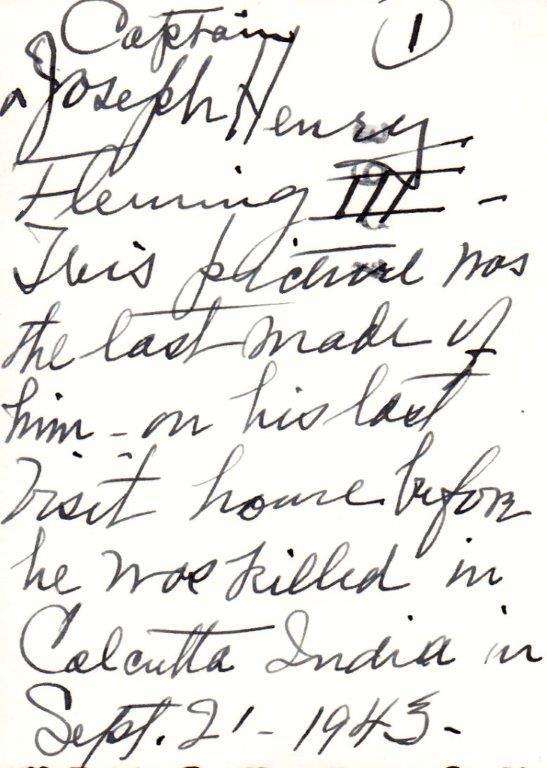 Captain ①
Joseph Henry
Fleming III -
This picture was
the last made of
him - on his last
visit home before
he was killed in
Calcutta India in
Sept. 21 - 1943 -